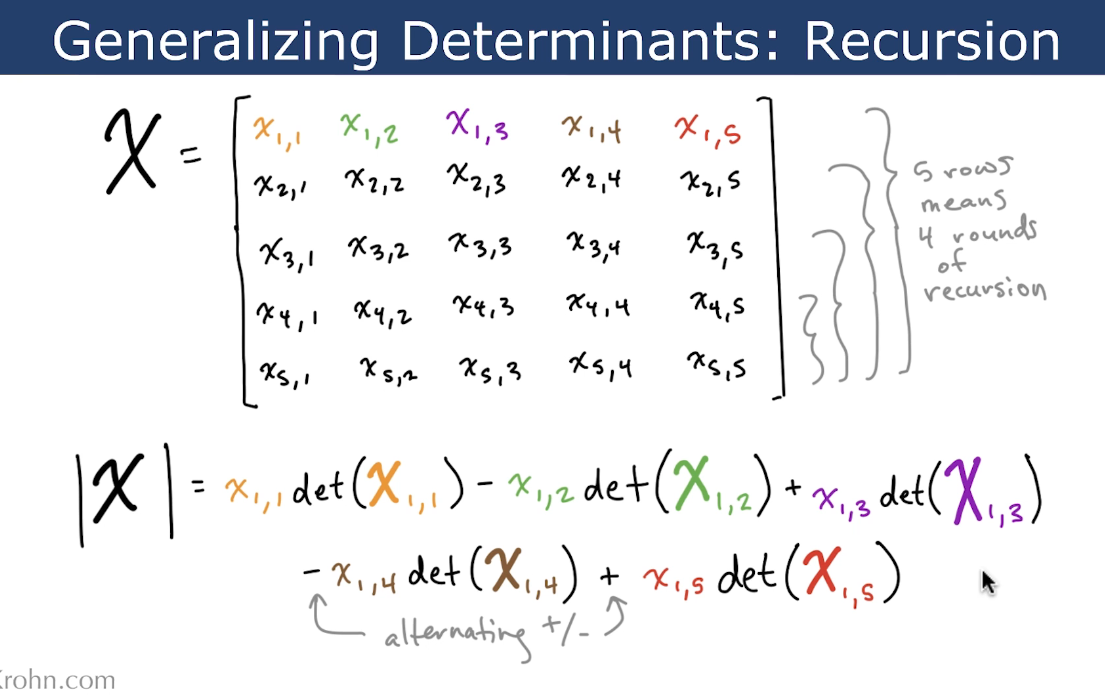 Generalizing Determinants: Recursion
X = [ x1,1 x1,2 x1,3 x1,4 x1,5
x2,1 x2,2 x2,3 x2,4 x2,5
x3,1 x3,2 x3,3 x3,4 x3,5
x4,1 x4,2 x4,3 x4,4 x4,5
x5,1 x5,2 x5,3 x5,4 x5,5 ]
5 rows
means
4 rounds
of
recursion
|X| = x1,1 det(X1,1) - x1,2 det(X1,2) + x1,3 det(X1,3)
- x1,4 det(X1,4) + x1,5 det(X1,5)
alternating +/-
rohn.com